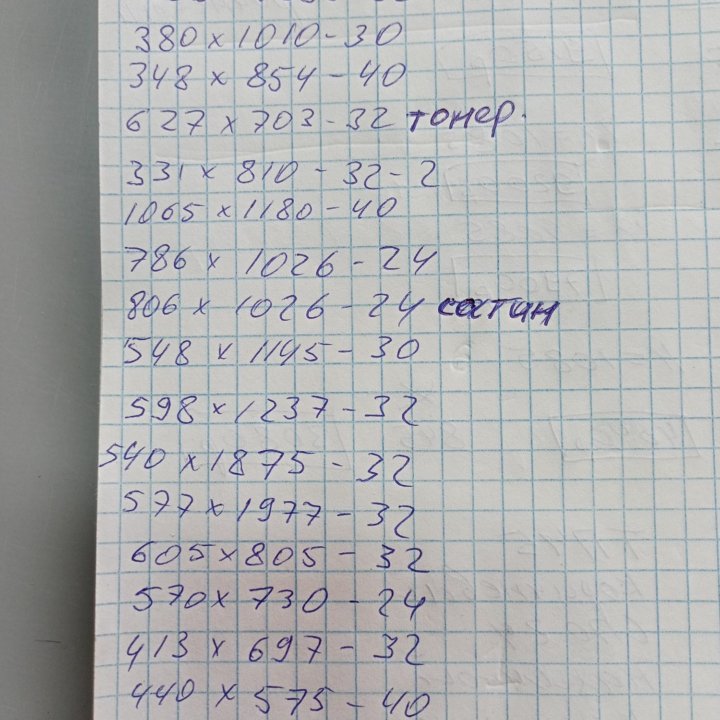 380 x 1010 - 30
348 x 854 - 40
627 x 703 - 32 тонер.
331 x 810 - 32 - 2
1065 x 1180 - 40
786 x 1026 - 24
806 x 1026 - 24 сатин
548 x 1145 - 30
598 x 1237 - 32
540 x 1875 - 32
577 x 1977 - 32
605 x 805 - 32
570 x 730 - 24
413 x 697 - 32
440 x 575 - 40